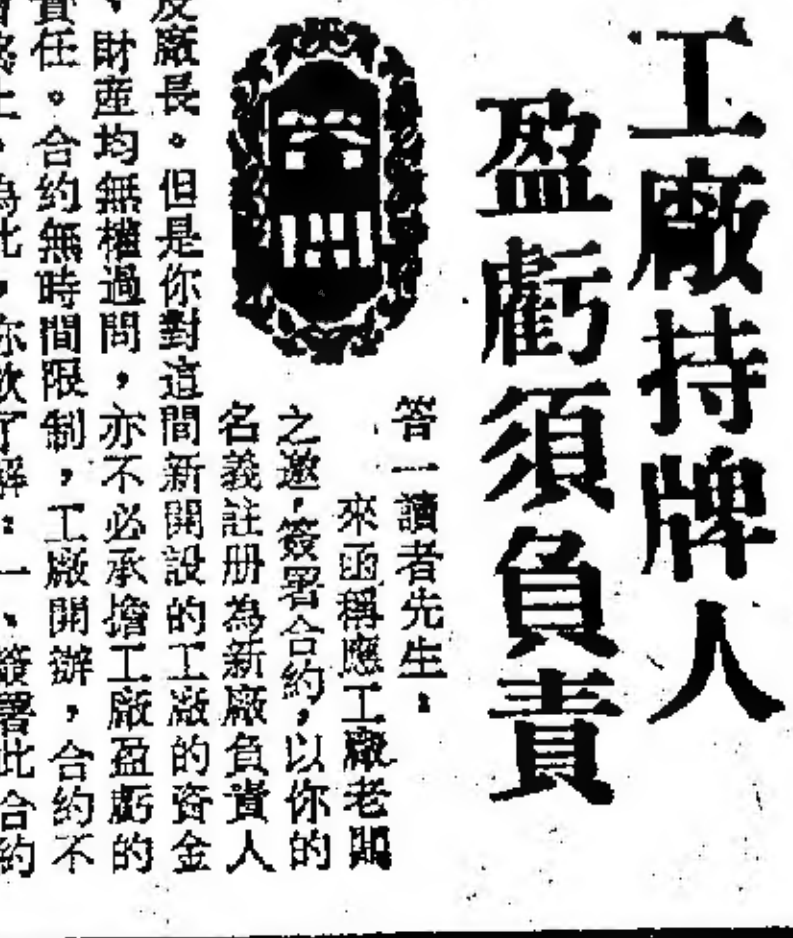 工廠持牌人
盈虧須負責
答一讀者先生：
來函稱應工廠老闆
之邀，簽署合約，以你的
名義註册為新廠負責人
及廠長。但是你對這間新開設的工廠的資金
、財產均無權過問，亦不必承擔工廠盈虧的
責任。合約無時間限制，工廠開辦，合約不
止。為此，你欲了解：一、簽署此合約